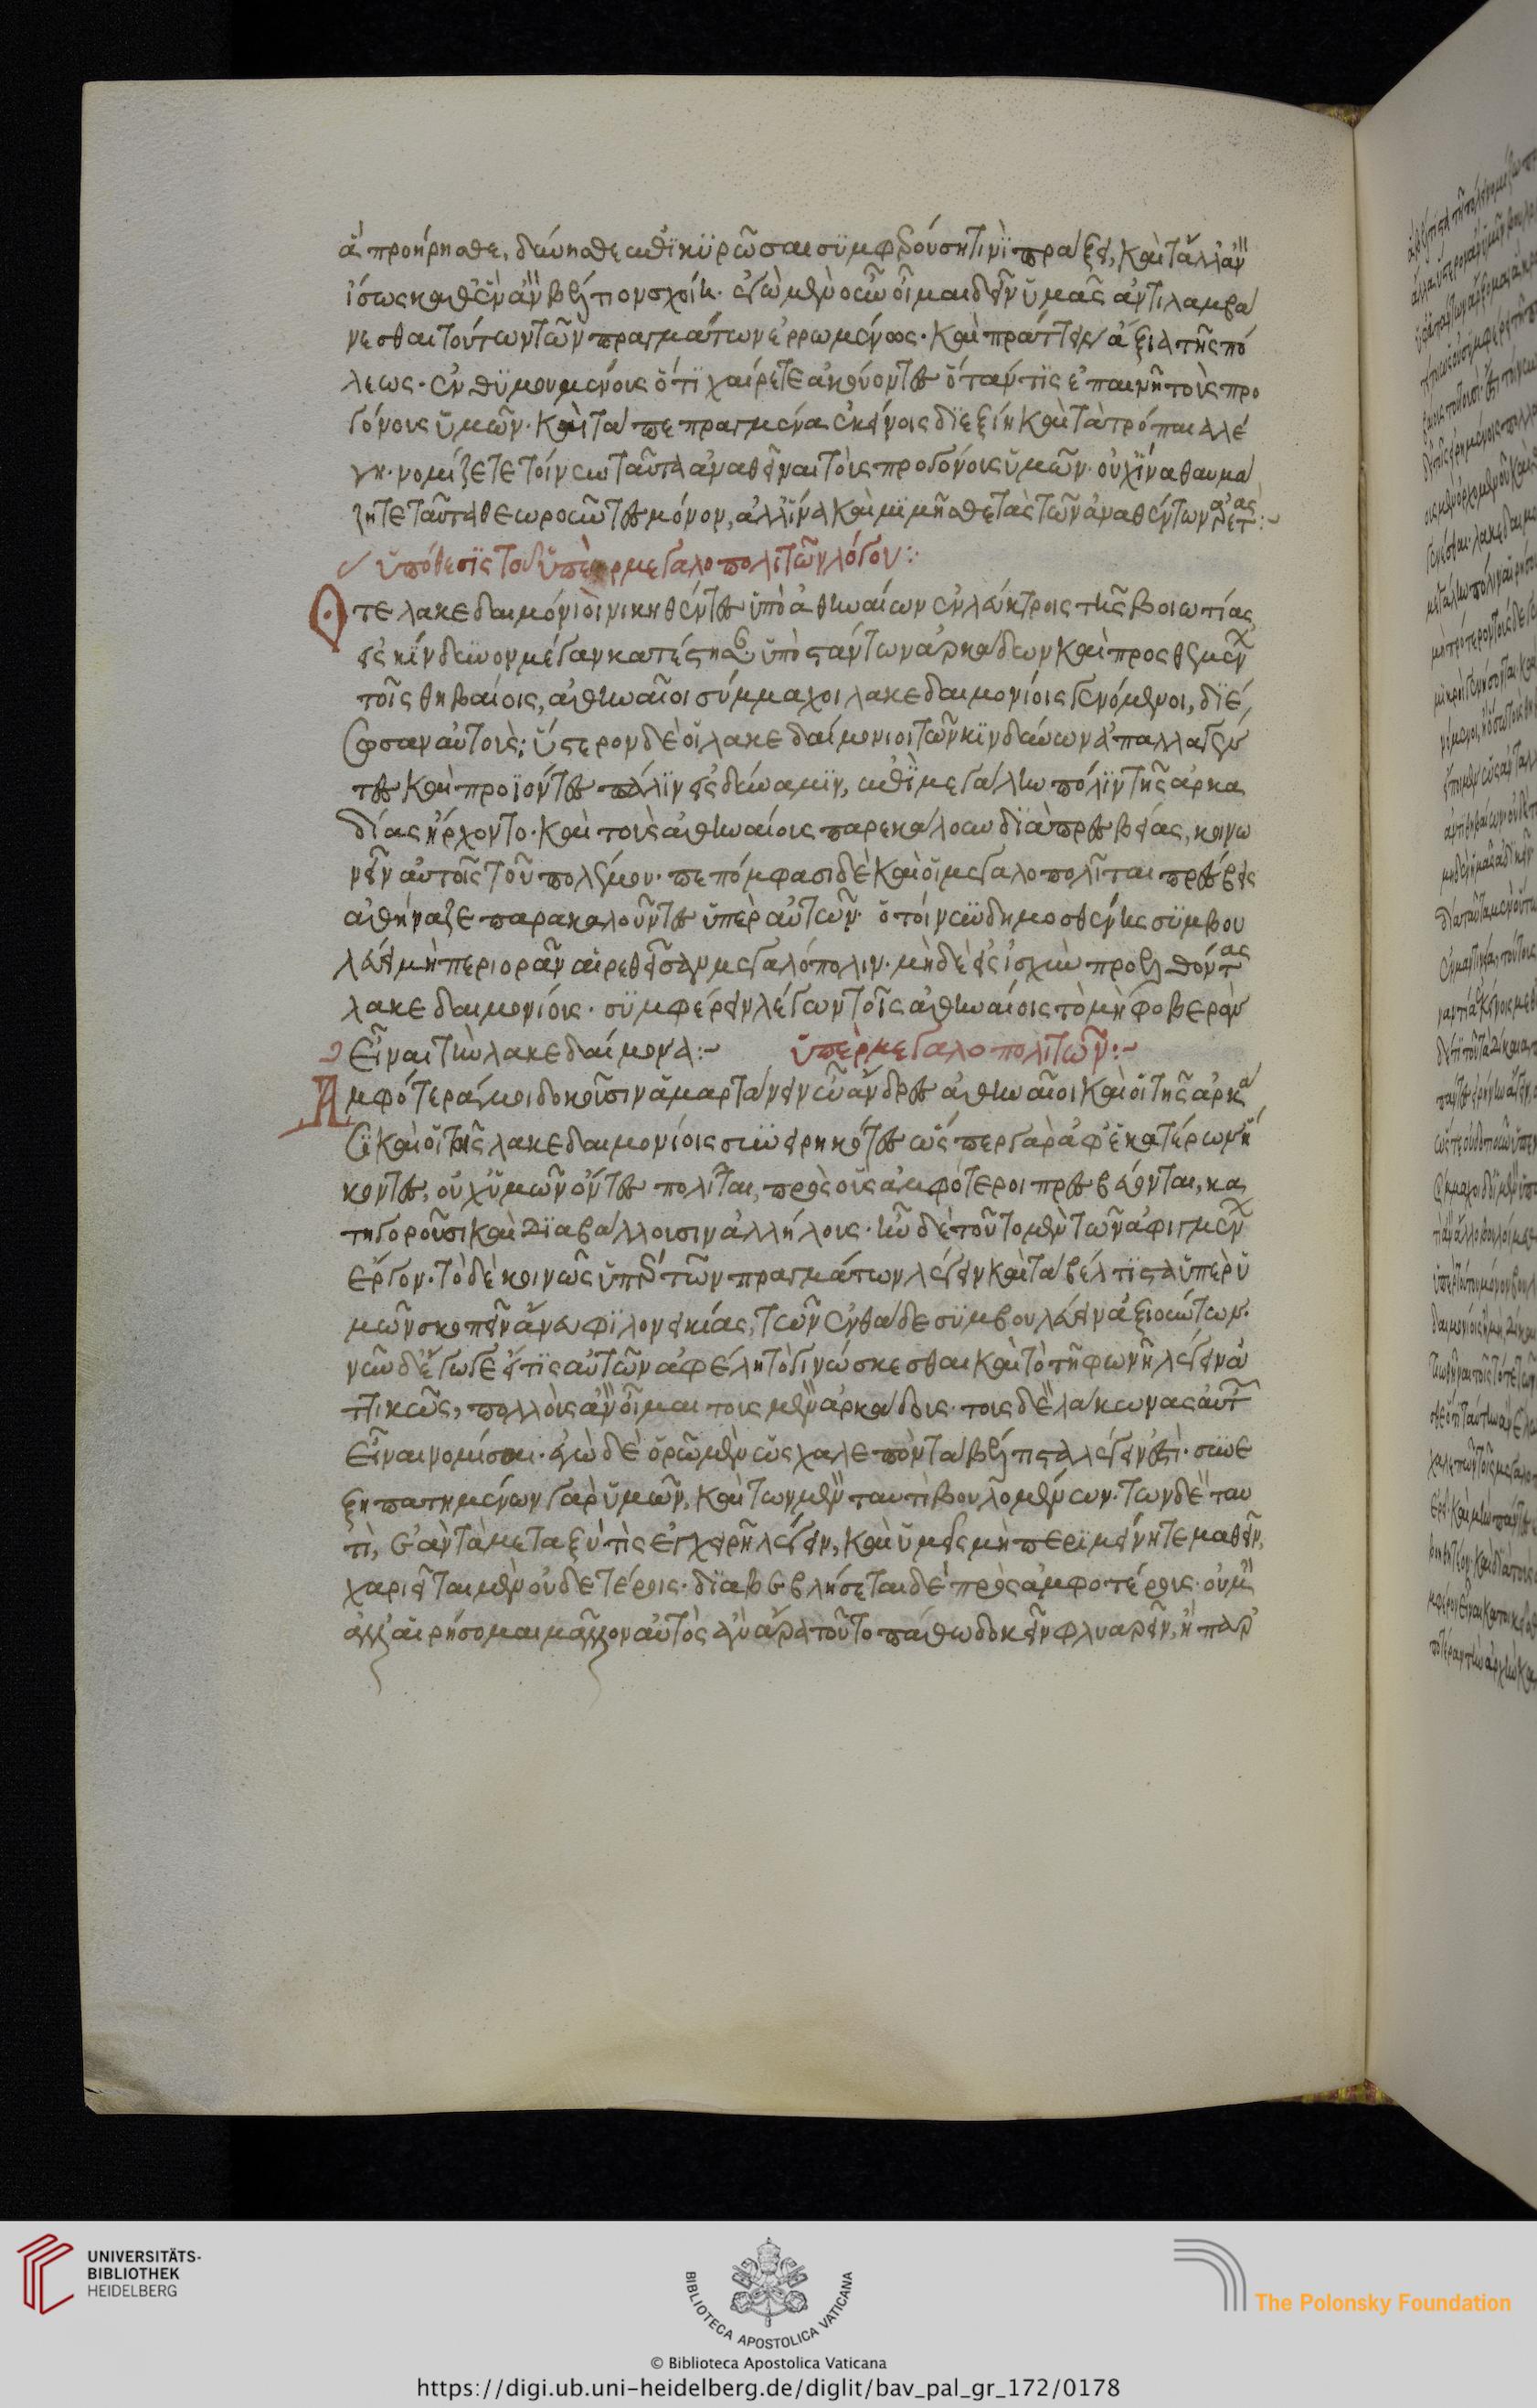 ἃ προήρησθε, δύνησθε ἐπϊκϋρῶσαι σϋμφερούσῃ τινὶ πράξει, καὶ τἄλλ' ἂν
ἴσως καθὲν ἂν βέλτιον σχοίη. ἐγὼ μὲν οὖν οἶμαι δεῖν ὑμᾶς ἀντιλαμβά
νεσθαι τούτων τῶν πραγμάτων ἐρρωμένως. καὶ πράττειν ἄξια τῆς πό
λεως. ἐνθϋμουμένοις ὅτϊ χαίρετε ἀκούοντες ὅταν τϊς ἐπαινῇ τοὺς προ
γόνους ὑμῶν. καὶ τὰ πεπραγμένα ἐκείνοις διεξίῃ καὶ τὰ τρόπαια λέ
γῃ. νομίζετε τοίνυν ταῦτα ἀναθεῖναι τοὺς προγόνους ὑμῶν. οὐχ ἵνα θαυμά
ζητε ταῦτα θεωροῦντες μόνον, ἀλλ' ἵνα καὶ μϊμῆσθε τὰς τῶν ἀναθέντων ἀρετάς:~
ὑπόθεσϊς τοῦ ὑπὲρ μεγαλοπολιτῶν λόγου:
Ὅτε λακεδαιμόνιοι νικηθέντες ὑπὸ ἀθηναίων ἐν λεύκτροις τῆς βοιωτίας
εἰς κίνδυνον μέγαν κατέστησαν ὑποστάντων ἀρκάδων καὶ προσθεμένων
τοῖς θηβαίοις, ἀθηναῖοι σύμμαχοι λακεδαιμονίοις γενόμενοι, διέ
σωσαν αὐτούς: ὕστερον δὲ οἱ λακεδαίμονιοι τῶν κϊνδύνων ἀπαλλαγέν
τες καὶ προϊόντες πάλϊν εἰς δύναμϊν, ἐπϊ μεγάλην πόλϊν τῆς ἀρκα
δίας ἤρχοντο. καὶ τοὺς ἀθηναίους παρεκάλουν διὰ πρεσβείας, κοινω
νεῖν αὐτοῖς τοῦ πολέμου. πεπόμφασι δὲ καὶ οἱ μεγαλοπολῖται πρέσβεις
ἀθήναζε παρακαλοῦντες ὑπὲρ αὐτῶν. ὅ τοίνυν δημοσθένης σϋμβου
λεύει μὴ περιορᾶν αἱρεθεῖσαν μεγαλόπολιν. μὴ δὲ εἰς ἰσχὺν προελθόντας
λακεδαιμονίοις. σϋμφέρειν λέγων τοῖς ἀθηναίοις τὸ μὴ φοβερὰν
εἶναι τὴν λακεδαίμονα:~ ὑπὲρ μεγαλοπολιτῶν:~
Ἀμφότεροί μοι δοκοῦσιν ἁμαρτάνειν ὦ ἄνδρες ἀθηναῖοι καὶ οἱ τῆς ἀρκα
σι καὶ οἱ τοῖς λακεδαιμονίοις συνειρηκότες ὥσπερ γὰρ ἀφ' ἑκατέρων ἥ
κοντες, οὐχ ὑμῶν ὄντες πολῖται, πρὸς οὓς ἀμφότεροι πρεσβεύονται, κα
τηγοροῦσι καὶ διαβάλλουσιν ἀλλήλους. ἦν δὲ τοῦτο μὲν τῶν ἀφιγμένων
ἔργον. τὸ δὲ κοινῶς ὑπὲρ τῶν πραγμάτων λέγειν καὶ τὰ βέλτϊστα ὑπὲρ ὑ
μῶν σκοπεῖν ἄνευ φϊλονεικίας, τῶν ἐνθάδε σϋμβουλεύειν ἀξιούντων.
νῦν δ' ἔγωγε εἴ τϊς αὐτῶν ἀφέλῃ τὸ γινώσκεσθαι καὶ τὸ τῇ φωνῇ λέγειν ἀτ
τικῶς, πολλοὺς ἂν οἶμαι τοὺς μὲν ἀρκάδας. τοὺς δὲ λάκωνας αὐτῶν
εἶναι νομίσαι. ἐγὼ δὲ ὁρῶ μὲν ὡς χαλεπὸν τὰ βέλτιστα λέγειν ἐστὶ. συνε
ξηπατημένων γὰρ ὑμῶν, καὶ τῶν μὲν ταυτὶ βουλομένων. τῶν δὲ ταυ
τὶ, ἐὰν τὰ μεταξύ τὶς ἐγχειρῇ λέγειν, καὶ ὑμεῖς μὴ περϊμείνητε μαθεῖν,
χαριεῖται μὲν οὐδετέροις. διαβεβλήσεται δὲ πρὸς ἀμφοτέρους. οὐ μὴν
ἀλλ' αἱρήσομαι μᾶλλον αὐτὸς ἐὰν ἄρα τοῦτο πάθω δοκεῖν φλυαρεῖν, ἢ παρ'
UNIVERSITÄTS-
BIBLIOTHEK
HEIDELBERG
BIBLIOTECA APOSTOLICA VATICANA
The Polonsky Foundation
© Biblioteca Apostolica Vaticana
https://digi.ub.uni-heidelberg.de/diglit/bav_pal_gr_172/0178